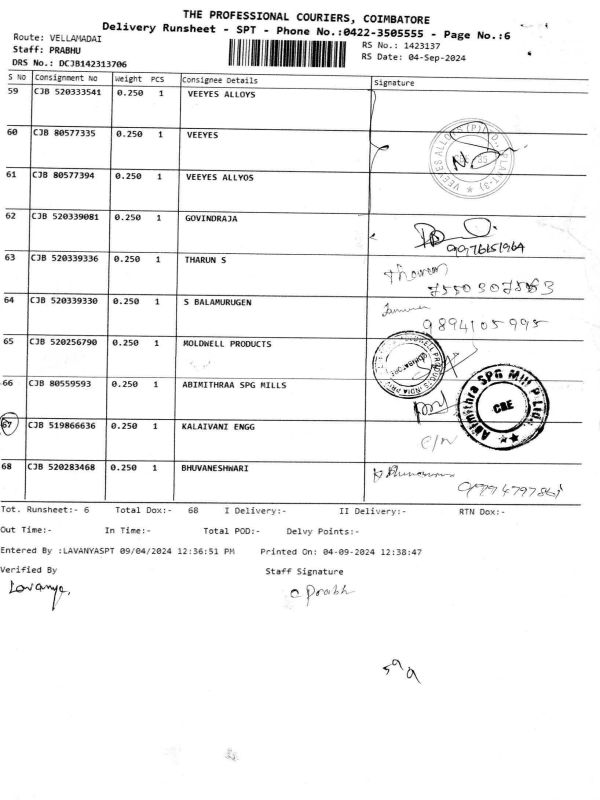 THE PROFESSIONAL COURIERS, COIMBATORE
Delivery Runsheet - SPT - Phone No.:0422-3505555 - Page No.:6
Route: VELLAMADAI
Staff: PRABHU
RS No.: 1423137
RS Date: 04-Sep-2024
DRS No.: DCJB142313706
S No Consignment No Weight PCS Consignee Details Signature
59 CJB 520333541 0.250 1 VEEYES ALLOYS
60 CJB 80577335 0.250 1 VEEYES
61 CJB 80577394 0.250 1 VEEYES ALLYOS
62 CJB 520339081 0.250 1 GOVINDRAJA
9976151964
63 CJB 520339336 0.250 1 THARUN S
Tharun
64 CJB 520339330 0.250 1 S BALAMURUGEN
9894105995
65 CJB 520256790 0.250 1 MOLDWELL PRODUCTS
66 CJB 80559593 0.250 1 ABIMITHRAA SPG MILLS
Abimithra SPG Mill P Ltd.
CBE
67 CJB 519866636 0.250 1 KALAIVANI ENGG
68 CJB 520283468 0.250 1 BHUVANESHWARI
Tot. Runsheet:- 6 Total Dox:- 68 I Delivery:- II Delivery:- RTN Dox:-
Out Time:- In Time:- Total POD:- Delvy Points:-
Entered By :LAVANYASPT 09/04/2024 12:36:51 PM Printed On: 04-09-2024 12:38:47
Verified By Staff Signature
Lavanya, Prabh